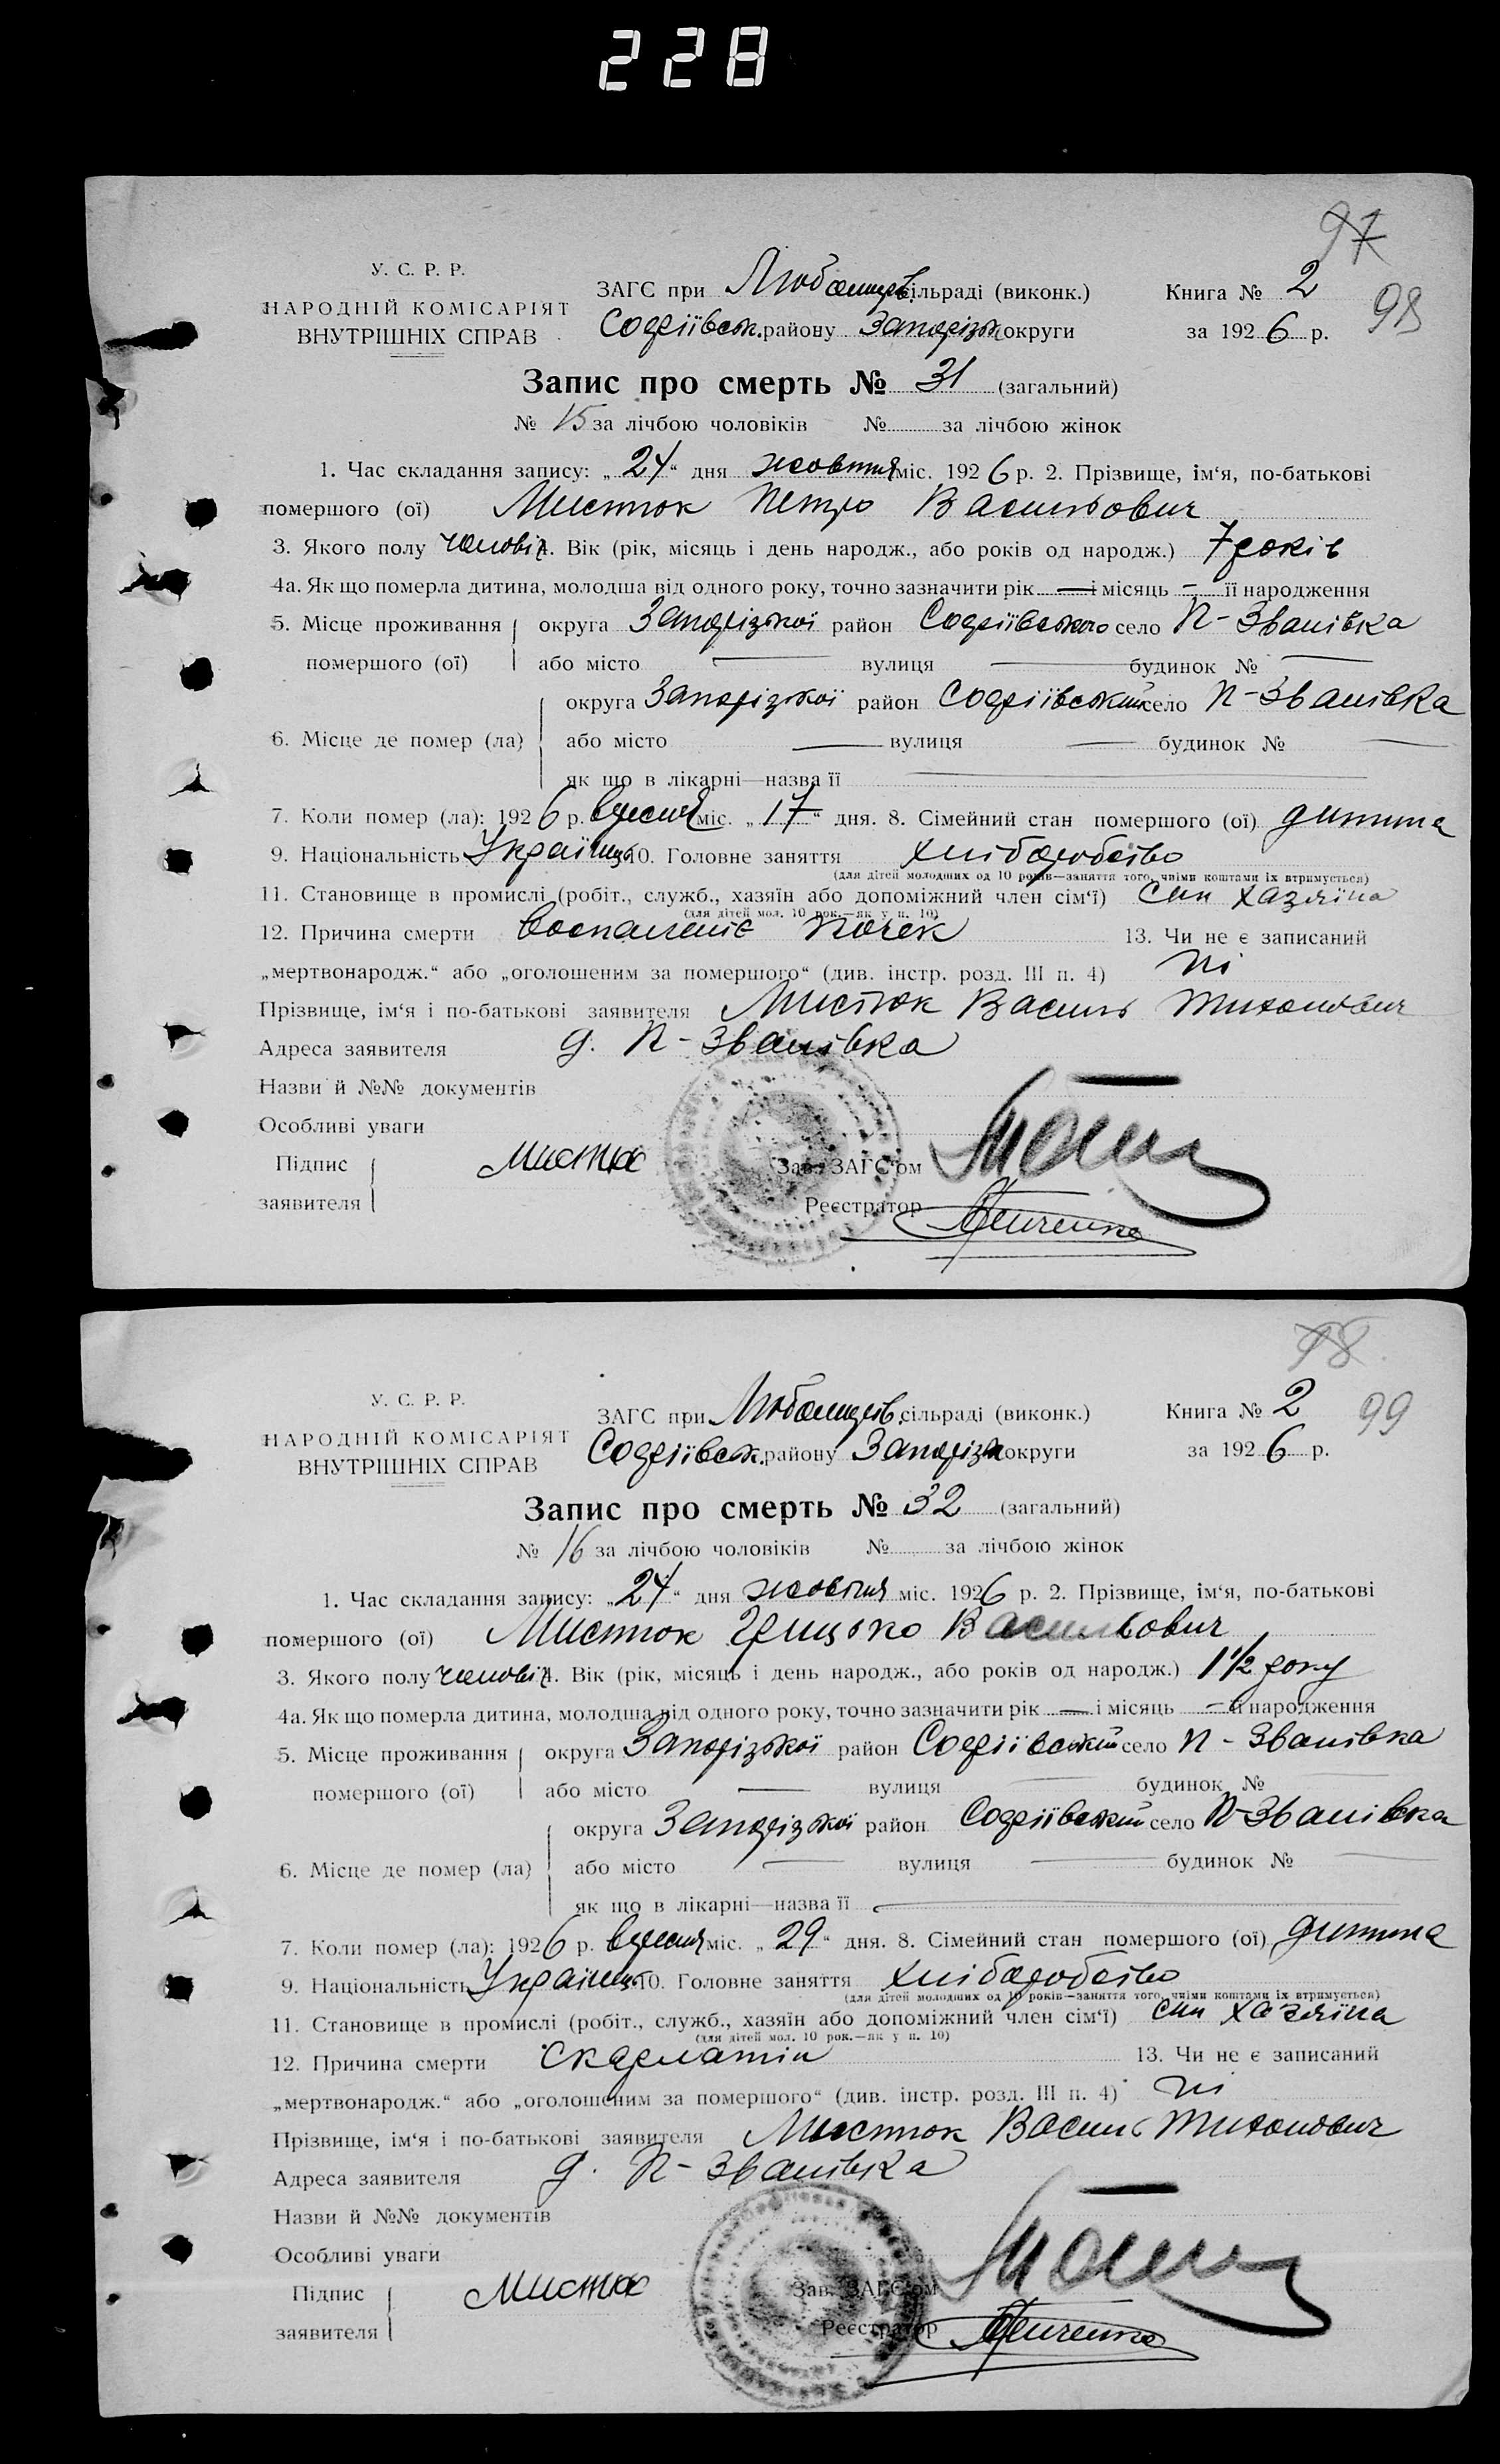 228
97
98
У. С. Р. Р.
НАРОДНІЙ КОМІСАРІЯТ
ВНУТРІШНІХ СПРАВ
ЗАГС при Любомирів. сільраді (виконк.)
Софіївськ. району Запоріжж округи
Книга № 2
за 1926 р.
Запис про смерть № 31 (загальний)
№ 15 за лічбою чоловіків № за лічбою жінок
1. Час складання запису: „24“ дня жовтня міс. 1926 р. 2. Прізвище, ім‘я, по-батькові
помершого (ої) Мистюк Петро Васильович
3. Якого полу чоловіч. Вік (рік, місяць і день народж., або років од народж.) 7 років
4а. Як що померла дитина, молодша від одного року, точно зазначити рік — і місяць — її народження
5. Місце проживання округа Запорізької район Софіївського село П-Званівка
помершого (ої) або місто — вулиця — будинок № —
округа Запорізької район Софіївський село П-Званівка
6. Місце де помер (ла) або місто — вулиця — будинок № —
як що в лікарні—назва її
7. Коли помер (ла): 1926 р. вересня міс. „17“ дня. 8. Сімейний стан помершого (ої) дитина
9. Національність Українець 10. Головне заняття хліборобство
(для дітей молодших од 10 років—заняття того, чиїми коштами їх втримується)
11. Становище в промислі (робіт., служб., хазяїн або допоміжний член сім‘ї) син хазяїна
(для дітей мол. 10 рок.—як у п. 10)
12. Причина смерти воспаленіє почек 13. Чи не є записаний
„мертвонародж.“ або „оголошеним за помершого“ (див. інстр. розд. III п. 4) ні
Прізвище, ім‘я і по-батькові заявителя Мистюк Василь Тихонович
Адреса заявителя д. П-Званівка
Назви й №№ документів
Особливі уваги
Підпис заявителя Мистюк
Зав. ЗАГС‘ом
Реєстратор
98
99
У. С. Р. Р.
НАРОДНІЙ КОМІСАРІЯТ
ВНУТРІШНІХ СПРАВ
ЗАГС при Любомирів. сільраді (виконк.)
Софіївськ. району Запоріжж округи
Книга № 2
за 1926 р.
Запис про смерть № 32 (загальний)
№ 16 за лічбою чоловіків № за лічбою жінок
1. Час складання запису: „24“ дня жовтня міс. 1926 р. 2. Прізвище, ім‘я, по-батькові
помершого (ої) Мистюк Грицько Васильович
3. Якого полу чоловіч. Вік (рік, місяць і день народж., або років од народж.) 1 1/2 року
4а. Як що померла дитина, молодша від одного року, точно зазначити рік — і місяць — її народження
5. Місце проживання округа Запорізької район Софіївський село П-Званівка
помершого (ої) або місто — вулиця — будинок № —
округа Запорізької район Софіївський село П-Званівка
6. Місце де помер (ла) або місто — вулиця — будинок № —
як що в лікарні—назва її
7. Коли помер (ла): 1926 р. вересня міс. „29“ дня. 8. Сімейний стан помершого (ої) дитина
9. Національність Українець 10. Головне заняття хліборобство
(для дітей молодших од 10 років—заняття того, чиїми коштами їх втримується)
11. Становище в промислі (робіт., служб., хазяїн або допоміжний член сім‘ї) син хазяїна
(для дітей мол. 10 рок.—як у п. 10)
12. Причина смерти Скарлатін 13. Чи не є записаний
„мертвонародж.“ або „оголошеним за помершого“ (див. інстр. розд. III п. 4) ні
Прізвище, ім‘я і по-батькові заявителя Мистюк Василь Тихонович
Адреса заявителя д. П-Званівка
Назви й №№ документів
Особливі уваги
Підпис заявителя Мистюк
Зав. ЗАГС‘ом
Реєстратор